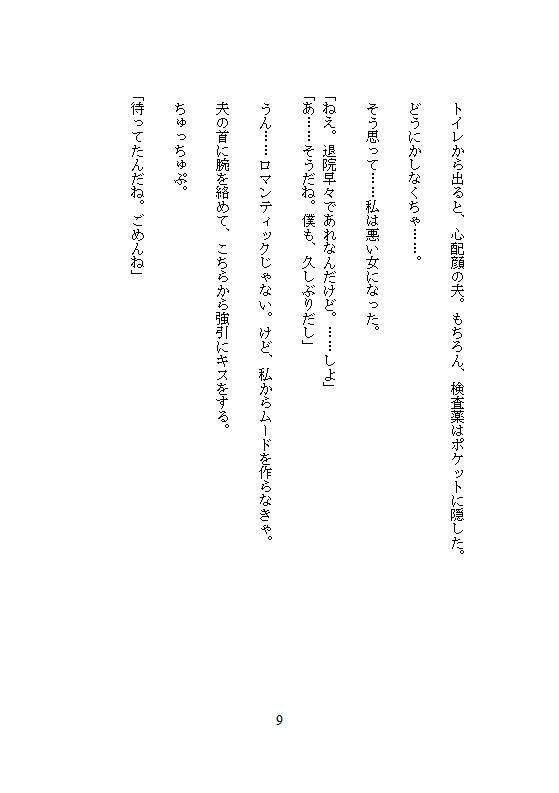 トイレから出ると、心配顔の夫。もちろん、検査薬はポケットに隠した。
どうにかしなくちゃ……。
そう思って……私は悪い女になった。
「ねえ。退院早々であれなんだけど。……しよ」
「あ……そうだね。僕も、久しぶりだし」
うん……ロマンティックじゃない。けど、私からムードを作らなきゃ。
夫の首に腕を絡めて、こちらから強引にキスをする。
ちゅっちゅぷ。
「待ってたんだね。ごめんね」
9